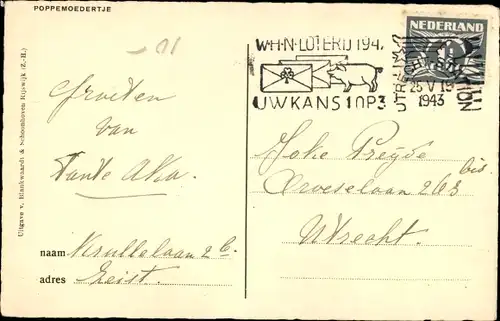 POPPEMOEDERTJE
- 01
Groeten
van
Tante Aka.
naam Krullelaan 2 b.
adres Zeist.
Uitgave v. Blankwaardt & Schoonhoven Rijswijk (Z.-H.)
W.H.N-LOTERIJ 194.
UW KANS 1 OP 3
UTRECHT-STATION
25 V 19
1943
NEDERLAND
Joke Preyde
Croeselaan 263 bis
Utrecht.